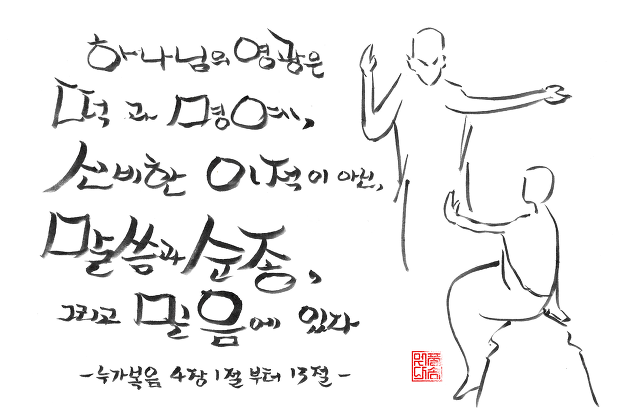 하나님의 영광은
떡과 명예,
신비한 이적이 아닌,
말씀과 순종,
그리고 믿음에 있다
-누가복음 4장 1절부터 13절-